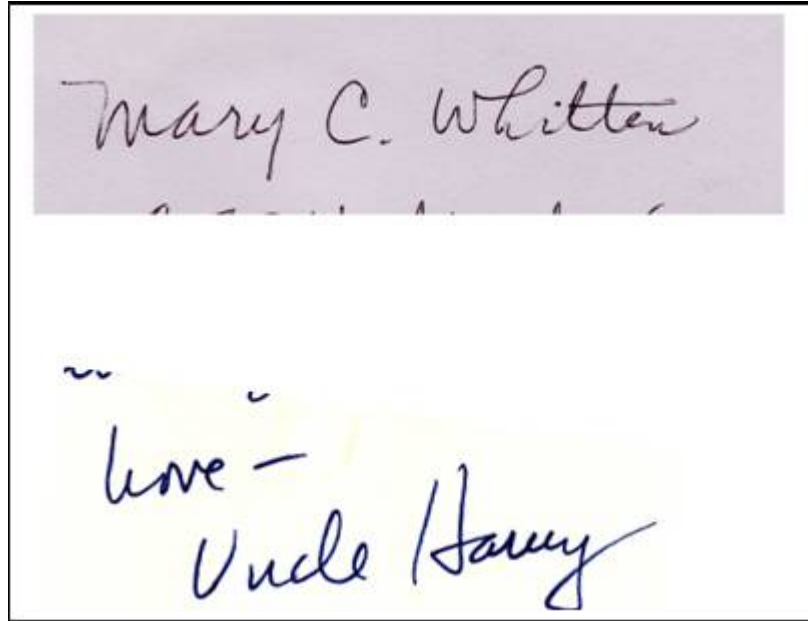 Mary C. Whitten
Love -
Uncle Harvey